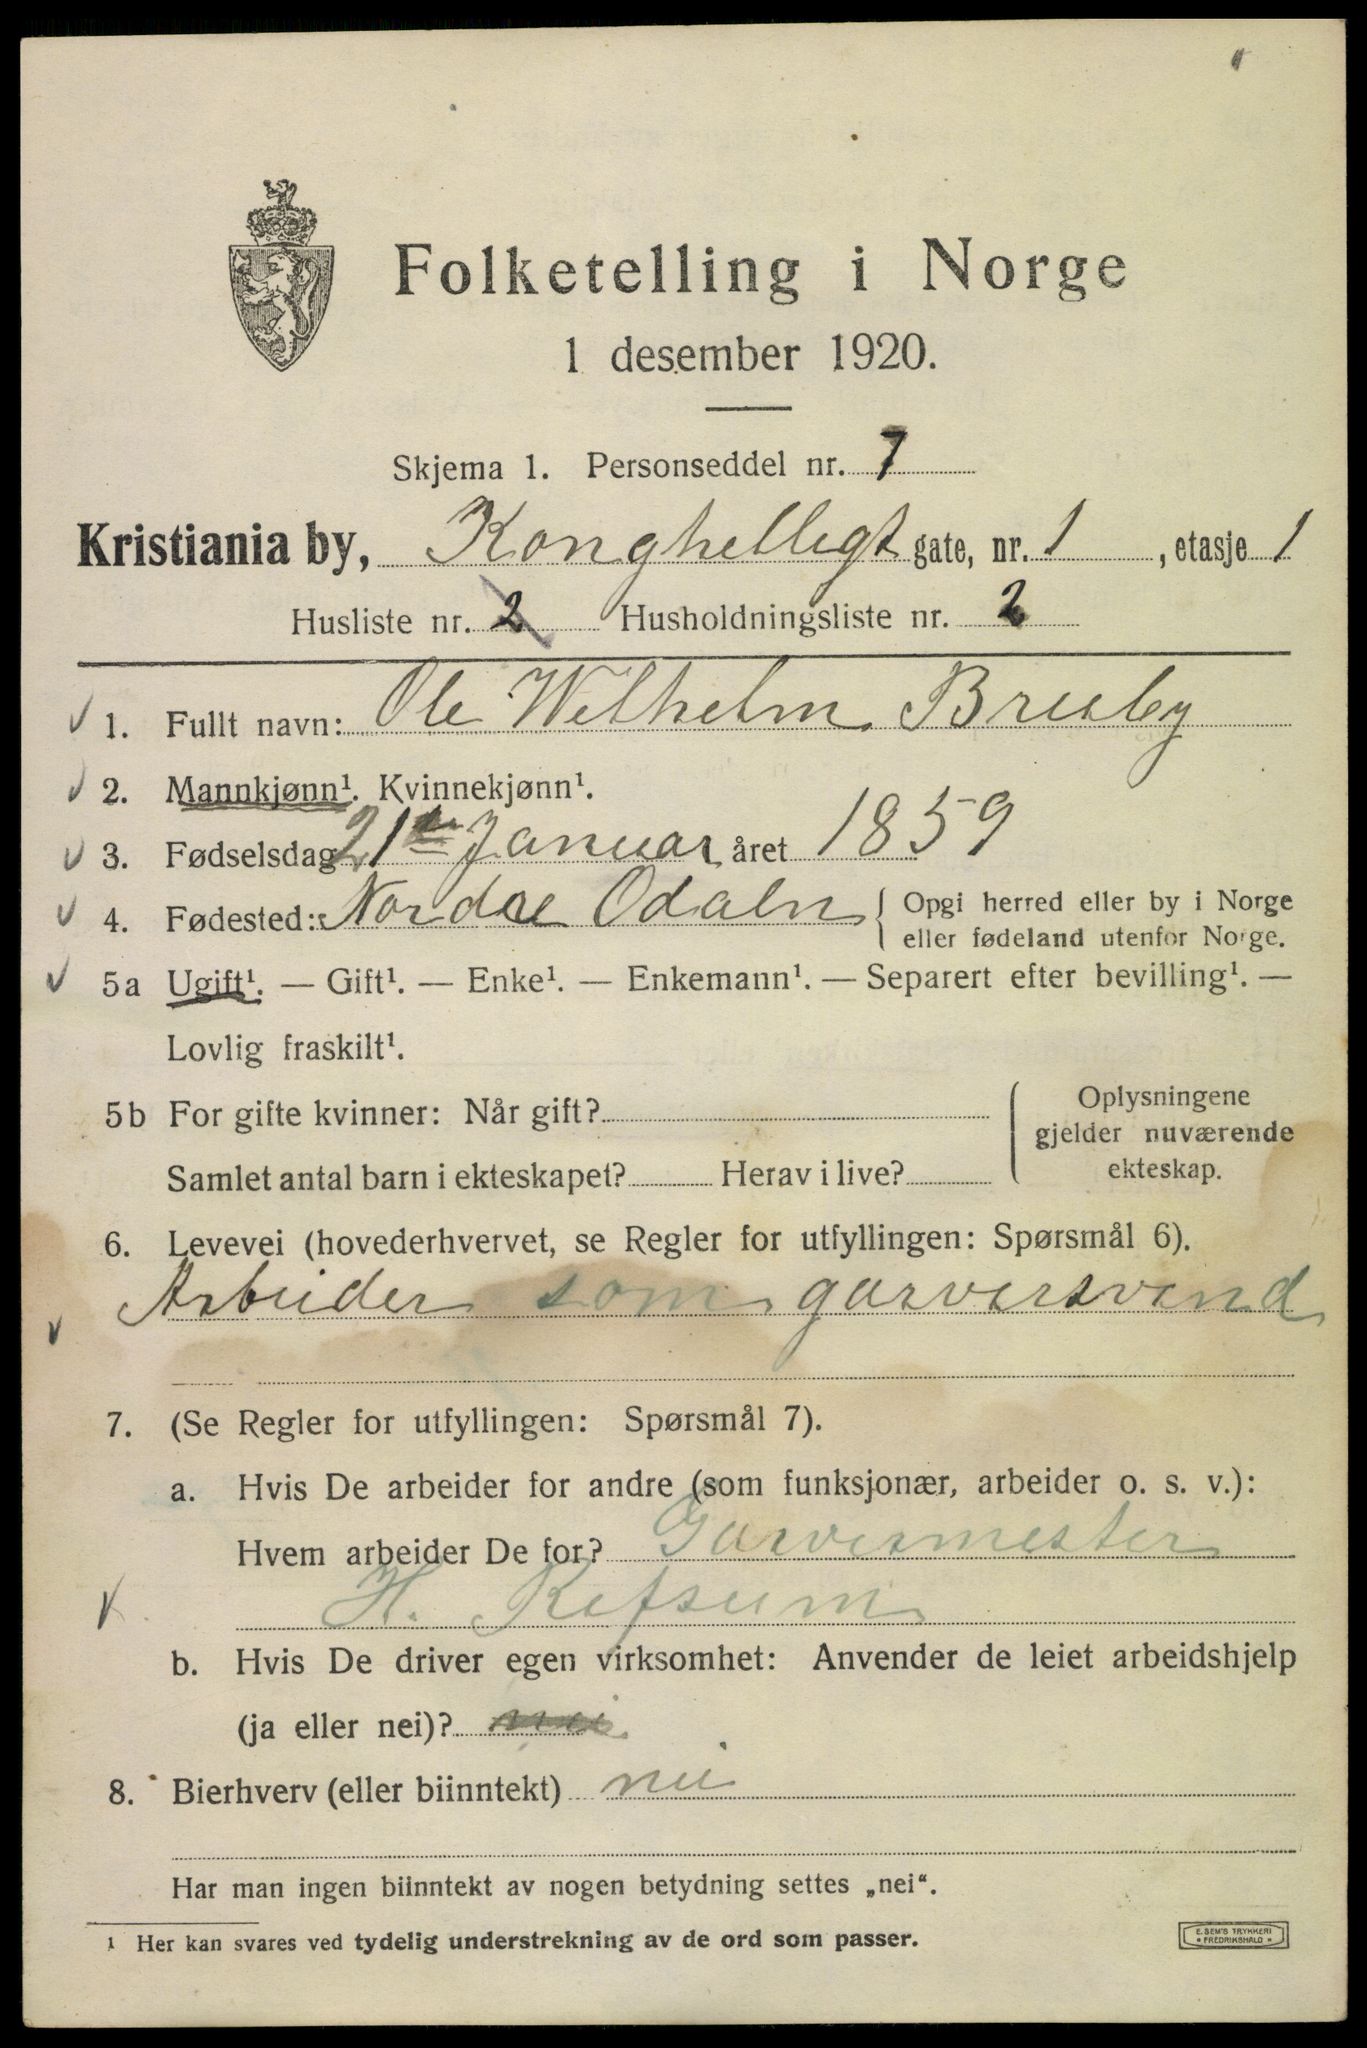 Folketelling i Norge
1 desember 1920.
Skjema 1. Personseddel nr. 7
Kristiania by, Konghellegt gate, nr. 1, etasje 1
Husliste nr. 2 Husholdningsliste nr. 2
1. Fullt navn: Ole Wilhelm Bruby
2. Mannkjønn¹. Kvinnekjønn¹.
3. Fødselsdag 21de Januar året 1859
4. Fødested: Nordre Odalen { Opgi herred eller by i Norge
eller fødeland utenfor Norge.
5a Ugift¹. — Gift¹. — Enke¹. — Enkemann¹. — Separert efter bevilling¹. —
Lovlig fraskilt¹.
5b For gifte kvinner: Når gift?
Samlet antal barn i ekteskapet? Herav i live?
Oplysningene
gjelder nuværende
ekteskap.
6. Levevei (hovederhvervet, se Regler for utfyllingen: Spørsmål 6).
Arbeider som garversvend
7. (Se Regler for utfyllingen: Spørsmål 7).
a. Hvis De arbeider for andre (som funksjonær, arbeider o. s. v.):
Hvem arbeider De for? Garvermester
H. Refsum
b. Hvis De driver egen virksomhet: Anvender de leiet arbeidshjelp
(ja eller nei)? nei
8. Bierhverv (eller biinntekt) nei
Har man ingen biinntekt av nogen betydning settes „nei“.
1 Her kan svares ved tydelig understrekning av de ord som passer.
E. SEM'S TRYKKERI
FREDRIKSHALD